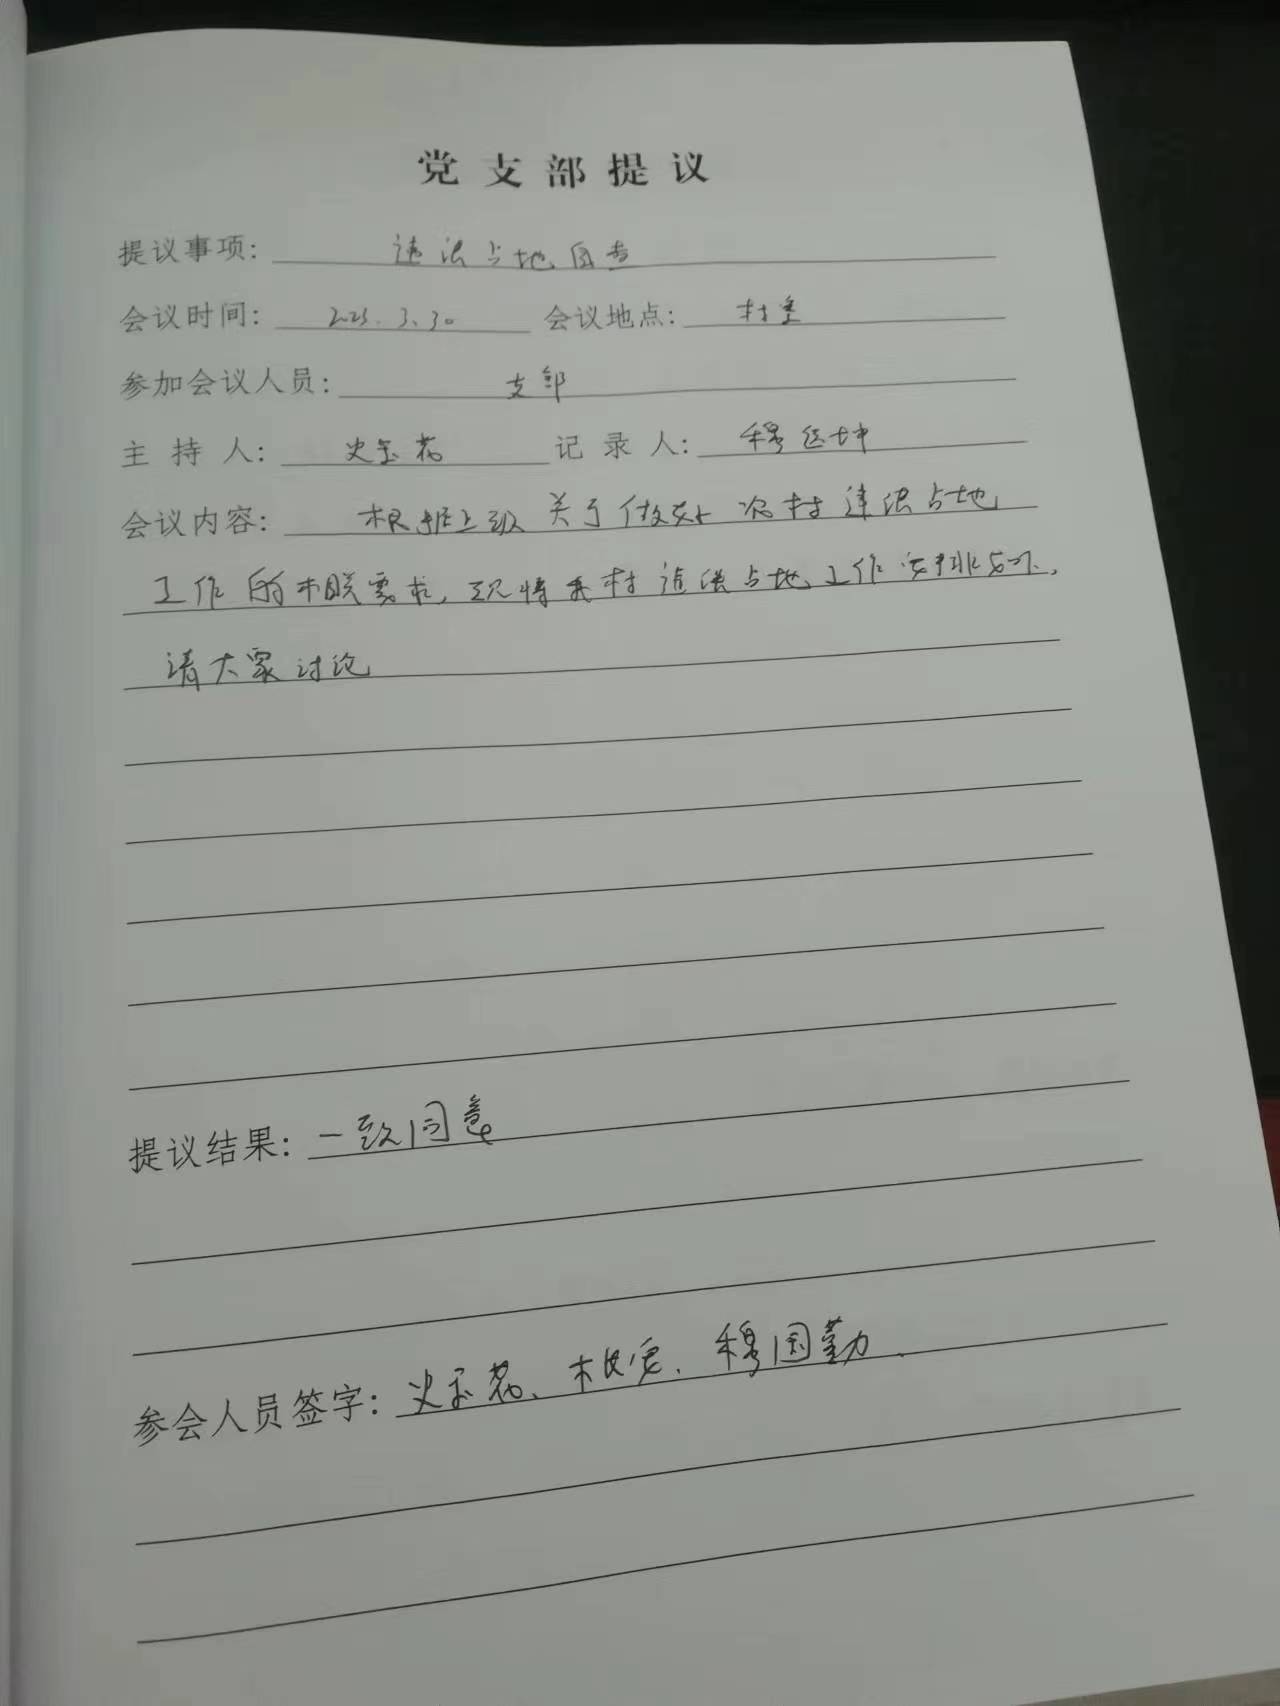 党支部提议
提议事项: 违法占地自查
会议时间: 2023.3.30 会议地点: 村室
参加会议人员: 支部
主持人: 史玉花 记录人: 穆
会议内容: 根据上级关于做好农村违法占地
工作的相关要求, 现将我村违法占地工作安排如下,
请大家讨论
提议结果: 一致同意
参会人员签字: 史玉花、穆国勤